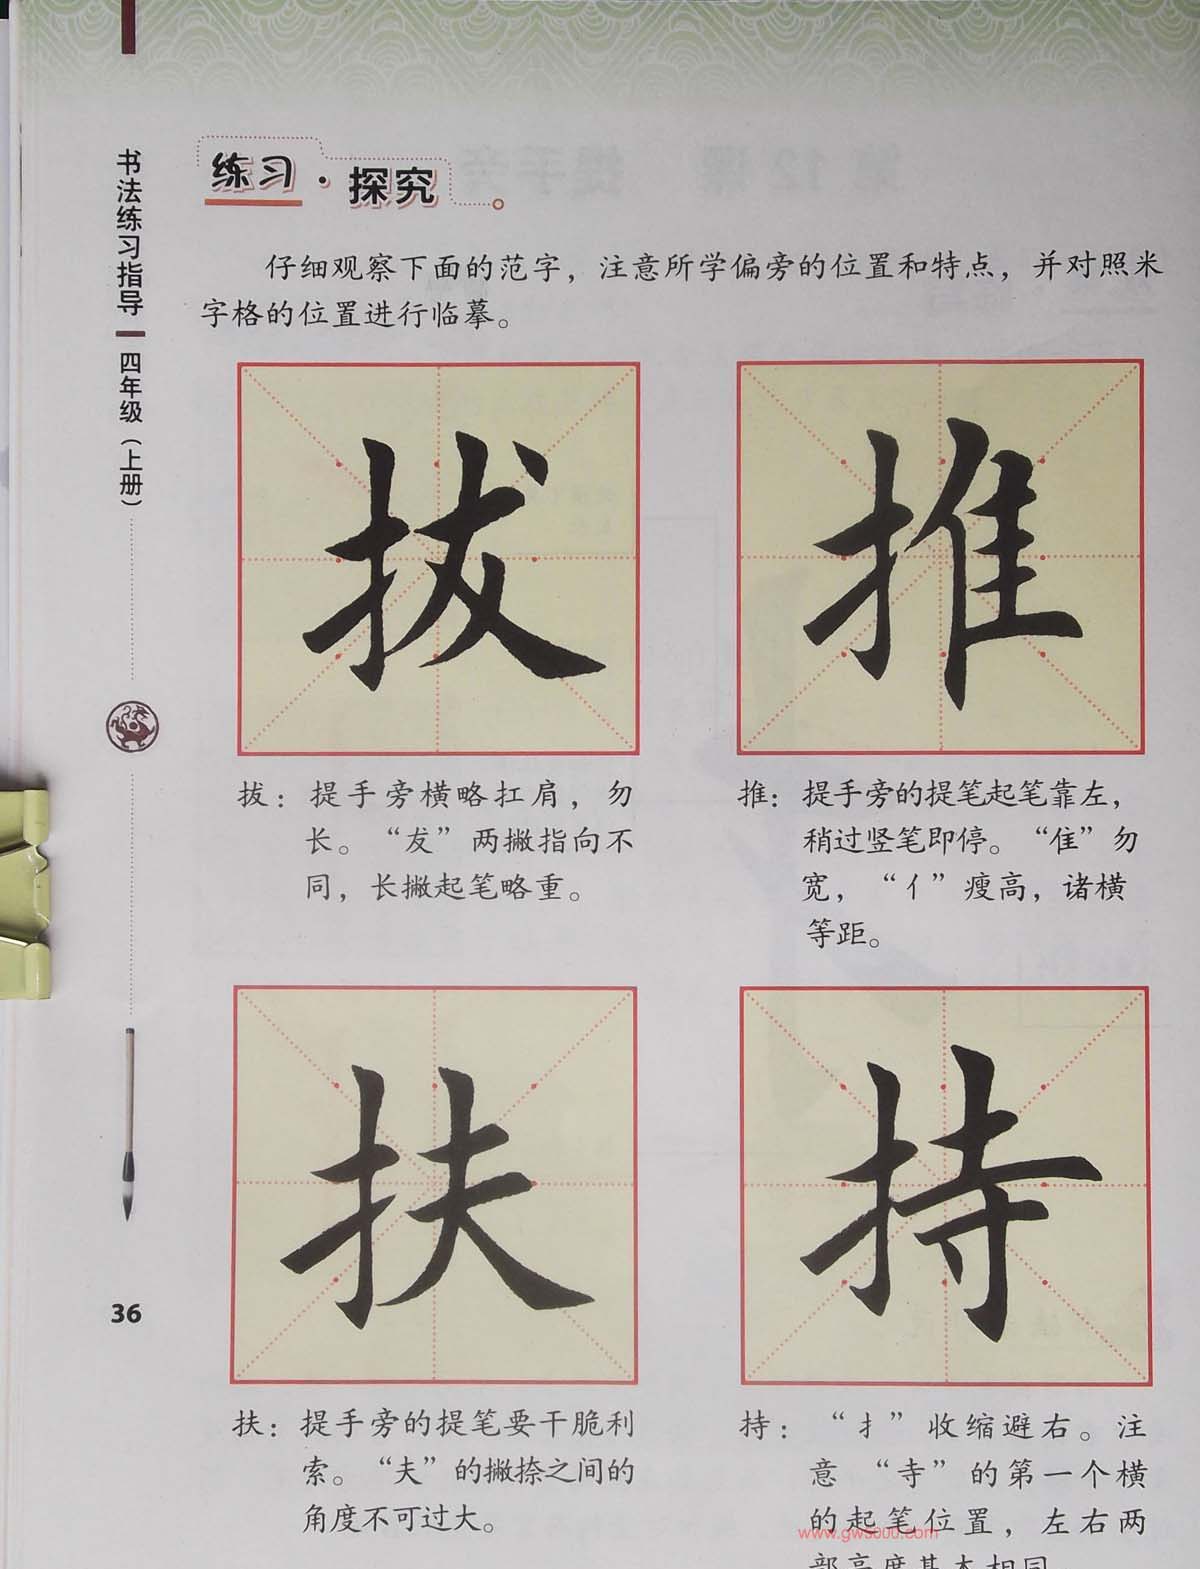 书法练习指导
四年级（上册）
练习·探究
仔细观察下面的范字，注意所学偏旁的位置和特点，并对照米
字格的位置进行临摹。
拔
推
拔：提手旁横略扛肩，勿
长。“犮”两撇指向不
同，长撇起笔略重。
推：提手旁的提笔起笔靠左，
稍过竖笔即停。“隹”勿
宽，“亻”瘦高，诸横
等距。
扶
持
36
扶：提手旁的提笔要干脆利
索。“夫”的撇捺之间的
角度不可过大。
持：“扌”收缩避右。注
意“寺”的第一个横
的起笔位置，左右两
部高度基本相同。
www.gws000.com